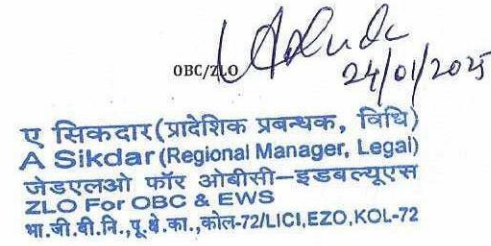 OBC/ZLO
24/01/2025
ए सिकदार(प्रादेशिक प्रबन्धक, विधि)
A Sikdar (Regional Manager, Legal)
जेडएलओ फॉर ओबीसी–इडबल्यूएस
ZLO For OBC & EWS
भा.जी.बी.नि.,पू.क्षे.का.,कोल-72/LICI,EZO,KOL-72